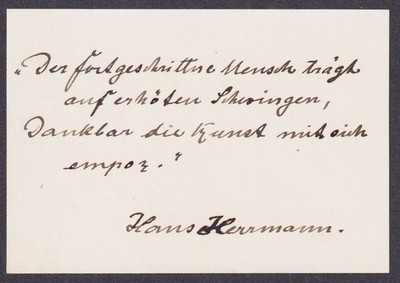 "Der fortgeschrittne Mensch trägt
auf erhöten Schwingen,
Dankbar die Kunst mit sich
empor."
Hans Herrmann.